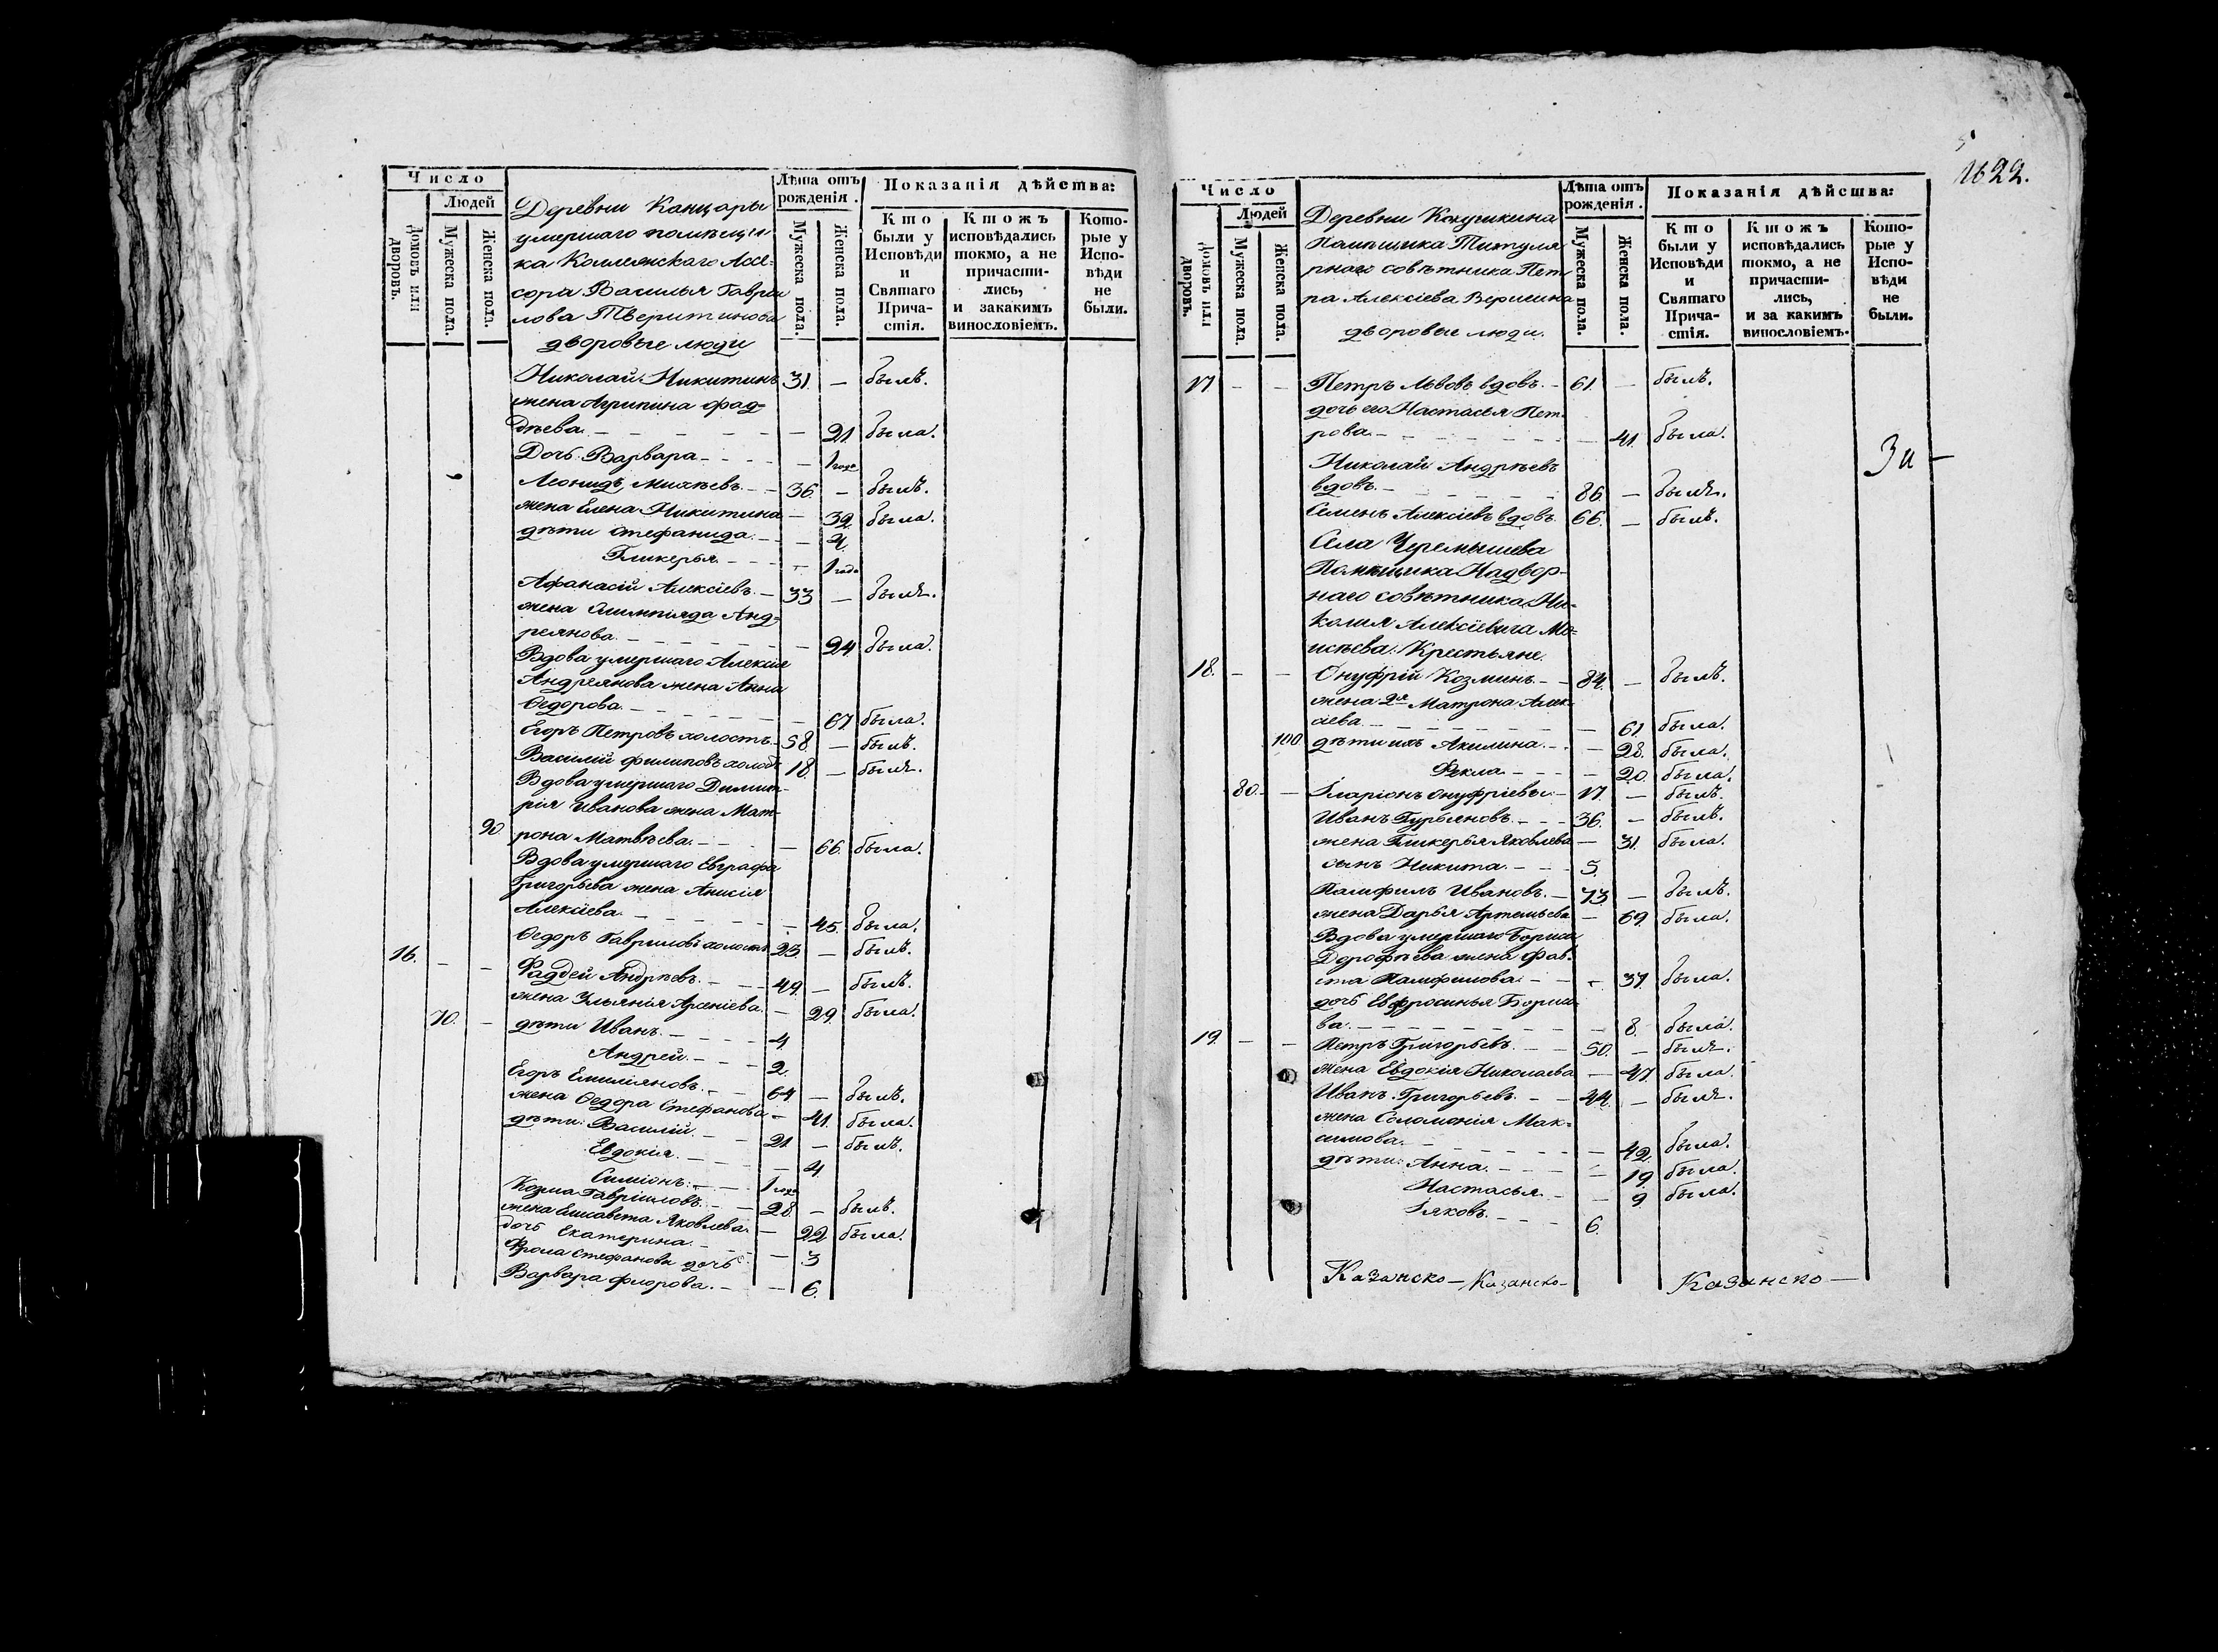 Число
Людей
Домовъ или дворовъ.
Мужеска пола.
Женска пола.
Деревни Канцары
умершаго помѣщи
ка Коллежскаго Ассе-
сора Василья Гаври
лова Тверитинова
дворовые люди
Лѣта отъ рожденія.
Мужеска пола.
Женска пола.
Показанія дѣйства:
Кто были у Исповѣди и Святаго Прича-стія.
Ктожъ исповѣдались токмо, а не причасти-лись, и закакимъ винословіемъ.
Кото-рые у Испо-вѣди не были.
Николай Никитинъ 31. — былъ.
жена Агрипина Фад-
дѣева. — 21. была.
Дочь Варвара — 1 года
Леонидъ Михѣевъ. 36. — былъ.
жена Елена Никитина — 39. была.
дѣти Стефанида. — 4.
Гликерья. — 1 года
Афанасій Алексіевъ. 33 — былъ.
жена Олимпіяда Анд-
реянова. — 24 была.
Вдова умершаго Алексія
Андреянова жена Анна
Ѳедорова. — 67. была.
Егоръ Петровъ холостъ. 58. — былъ.
Василій Филиповъ холостъ 18. — былъ.
Вдова умершаго Димит-
рія Иванова жена Мат-
90. рона Матвѣева. — 66. была.
Вдова умершаго Евграфа
Григорьева жена Анисія
Алексіева. — 45. была.
Ѳедоръ Гавриловъ холостъ 23. — былъ.
16. — — Фаддей Андрѣевъ. 49. — былъ.
жена Ульянія Арсеніева. — 29. была.
70. — дѣти Иванъ. 4.
Андрей. 2.
Егоръ Емиліяновъ. 64 — былъ.
жена Ѳедора Стефанова — 41. была.
дѣти: Василій. 21. — былъ.
Евдокія. — 4.
Симіонъ. 1 года
Козма Гавріиловъ. 28. — былъ.
жена Елисавета Яковлева. — 22 была.
дочь Екатерина. — 3
Фрола Стефанова дочь
Варвара Флорова. — 6.
1622.
Число
Людей
Домовъ или дворовъ.
Мужеска пола.
Женска пола.
Деревни Кокушкина
Помѣщика Титуля
рнаго совѣтника Пет
ра Алексіева Веригина
дворовые люди.
Лѣта отъ рожденія.
Мужеска пола.
Женска пола.
Показанія дѣйства:
Кто были у Исповѣди и Святаго Прича-стія.
Ктожъ исповѣдались токмо, а не причасти-лись, и за какимъ винословіемъ.
Кото-рые у Испо-вѣди не были.
17 — — Петръ Львовъ вдовъ. 61. — былъ.
дочь его Настасья Пет-
рова. — 41. была.
Николай Андрѣевъ
вдовъ. 86. — былъ.
Семенъ Алексіевъ вдовъ. 66. — былъ.
Села Черемышева
Помѣщика Надвор-
наго совѣтника Ни-
колая Алексіевича Мо-
исѣева. Крестьяне.
18. — — Онуфрій Козминъ. 84. — былъ.
жена 2я Матрона Алек-
сіева. — 61. была.
100. дѣти ихъ Акилина. — 28. была.
Фекла. — 20. была.
80. — Иларіонъ Онуфріевъ. 17. — былъ.
Иванъ Гурьяновъ. 36. — былъ.
жена Гликерья Яковлева — 31. была.
сынъ Никита. 5.
Памфилъ Ивановъ. 73. — былъ.
жена Дарья Артемьева — 69. была.
Вдова умершаго Бориса
Дорофѣева жена Фав-
ста Памфилова. — 37. была.
дочь Евфросинья Бориса-
ва. — 8. была.
19. — — Петръ Григорьевъ. 50. — былъ.
жена Евдокія Николаева — 47. была.
Иванъ Григорьевъ. 44. — былъ.
жена Соломонія Мак-
симова. — 42. была.
дѣти: Анна. — 19. была.
Настасья. — 9. была.
Іяковъ. 6.
Казанско — Казанско — Казанско —